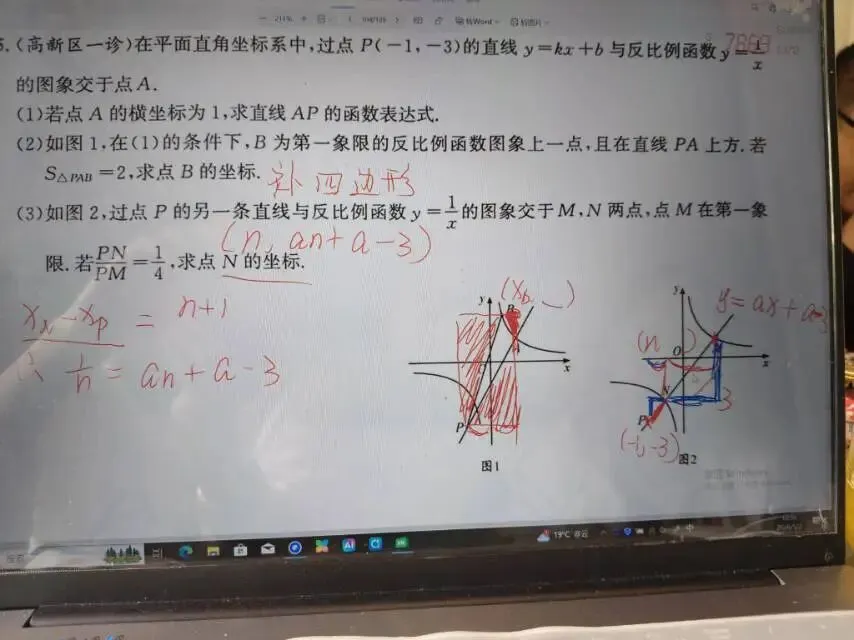 转Word
5.(高新区一诊)在平面直角坐标系中,过点 P(-1,-3)的直线 y=kx+b 与反比例函数 y=1/x
的图象交于点 A.
(1)若点 A 的横坐标为 1,求直线 AP 的函数表达式.
(2)如图 1,在(1)的条件下,B 为第一象限的反比例函数图象上一点,且在直线 PA 上方.若
S△PAB=2,求点 B 的坐标. 补四边形
(3)如图 2,过点 P 的另一条直线与反比例函数 y=1/x 的图象交于 M,N 两点,点 M 在第一象
(n, an+a-3)
限.若 PN/PM=1/4,求点 N 的坐标.
= n+1
1/n = an+a-3
y
B
A
O
x
P
图1
y=ax+a-3
y
(n
O
x
N
3
P
(-1,-3)
图2
19°C